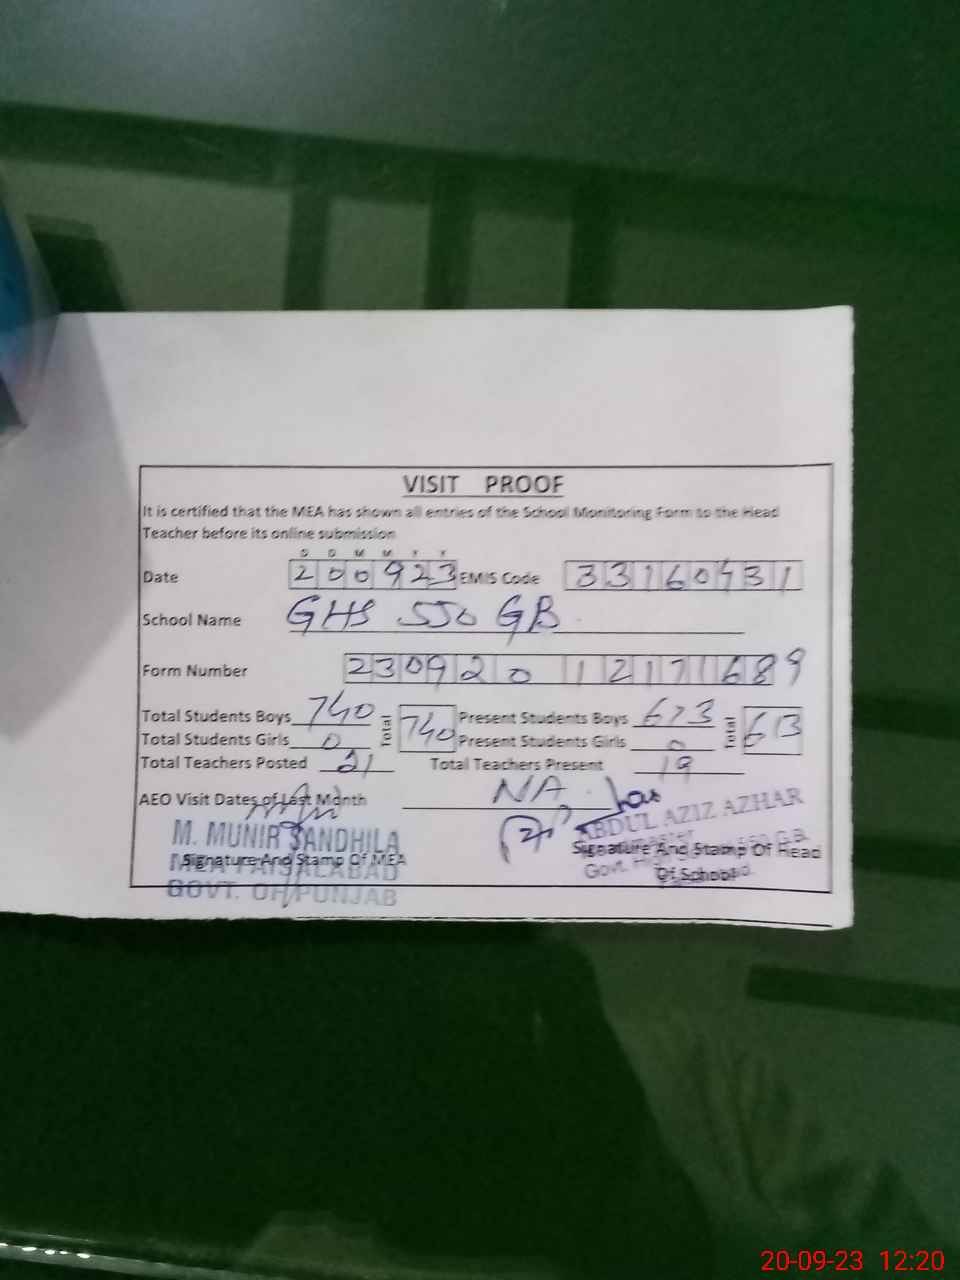 VISIT PROOF
It is certified that the MEA has shown all entries of the School Monitoring Form to the Head
Teacher before its online submission
D D M M Y Y
Date 200923 EMIS Code 33160431
School Name GHS 550 GB
Form Number 23092012171689
Total Students Boys 740 Total 740 Present Students Boys 673 Total 613
Total Students Girls 0 Present Students Girls 0
Total Teachers Posted 21 Total Teachers Present 19
AEO Visit Dates of Last Month NA
M. MUNIR SANDHILA ABDUL AZIZ AZHAR
Signature And Stamp Of MEA Signature And Stamp Of Head
MEA FAISALABAD Of School
GOVT. OF PUNJAB
20-09-23 12:20